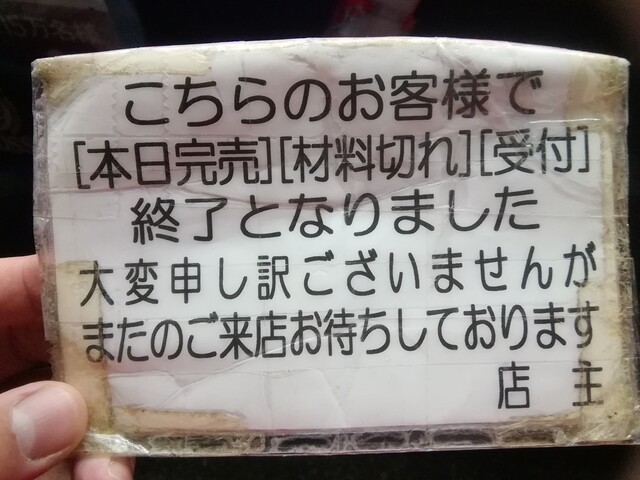 15万名様
こちらのお客様で
[本日完売][材料切れ][受付]
終了となりました
大変申し訳ございませんが
またのご来店お待ちしております
店 主